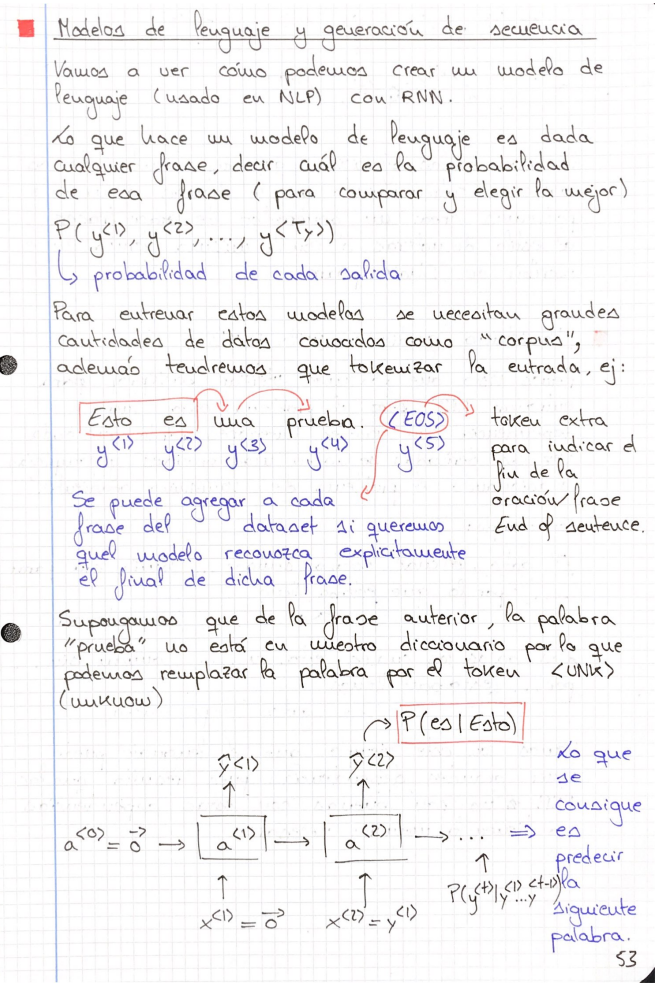 Modelos de lenguaje y generación de secuencia
Vamos a ver cómo podemos crear un modelo de
lenguaje (usado en NLP) con RNN.
Lo que hace un modelo de lenguaje es dada
cualquier frase, decir cuál es la probabilidad
de esa frase (para comparar y elegir la mejor)
P(y<1>, y<2>, ..., y<Ty>)
↳ probabilidad de cada salida
Para entrenar estos modelos se necesitan grandes
cantidades de datos conocidos como "corpus",
además tendremos que tokenizar la entrada, ej:
Esto es una prueba. <EOS>
y<1> y<2> y<3> y<4> y<5>
token extra
para indicar el
fin de la
oración/frase
End of sentence.
Se puede agregar a cada
frase del dataset si queremos
quel modelo reconozca explicitamente
el final de dicha frase.
Supongamos que de la frase anterior, la palabra
"prueba" no está en nuestro diccionario por lo que
podemos remplazar la palabra por el token <UNK>
(unknow)
P(es | Esto)
ŷ<1> ŷ<2>
a<0> = 0⃗ → a<1> → a<2> → ... ⇒
x<1> = 0⃗ x<2> = y<1>
P(y<t>|y<1>...y<t-1>)
Lo que
se
consigue
es
predecir
la
siguiente
palabra.
53